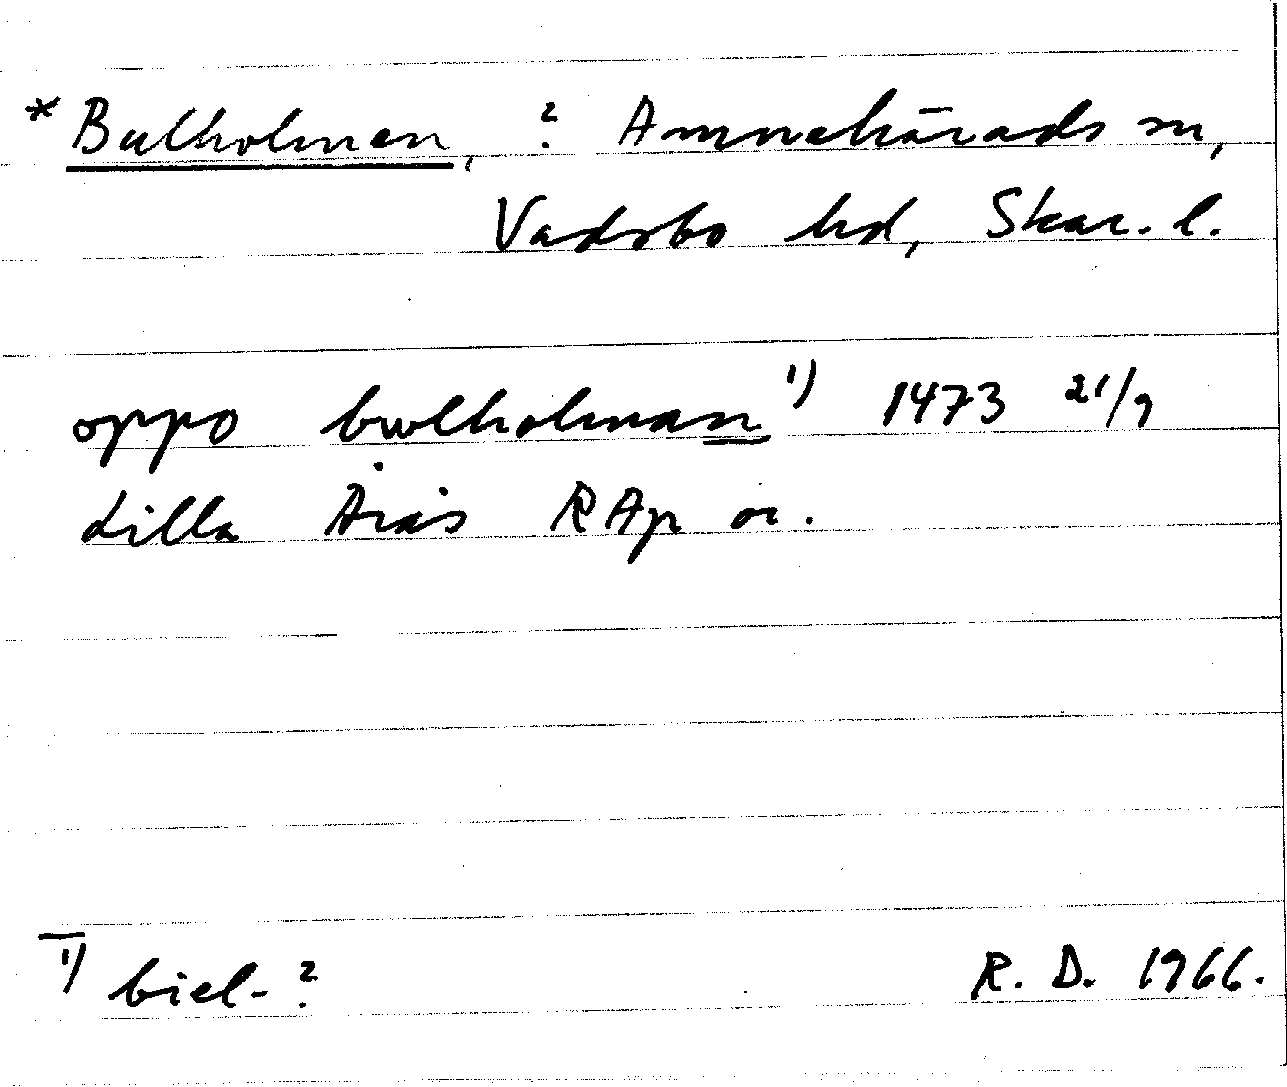 * Bulholmen, ? Amnehärads sn,
Vadsbo hd, Skar. l.
oppo bwlholman 1) 1473 21/9
Lilla Årås RAp or.
1) biel- ?
R. D. 1966.